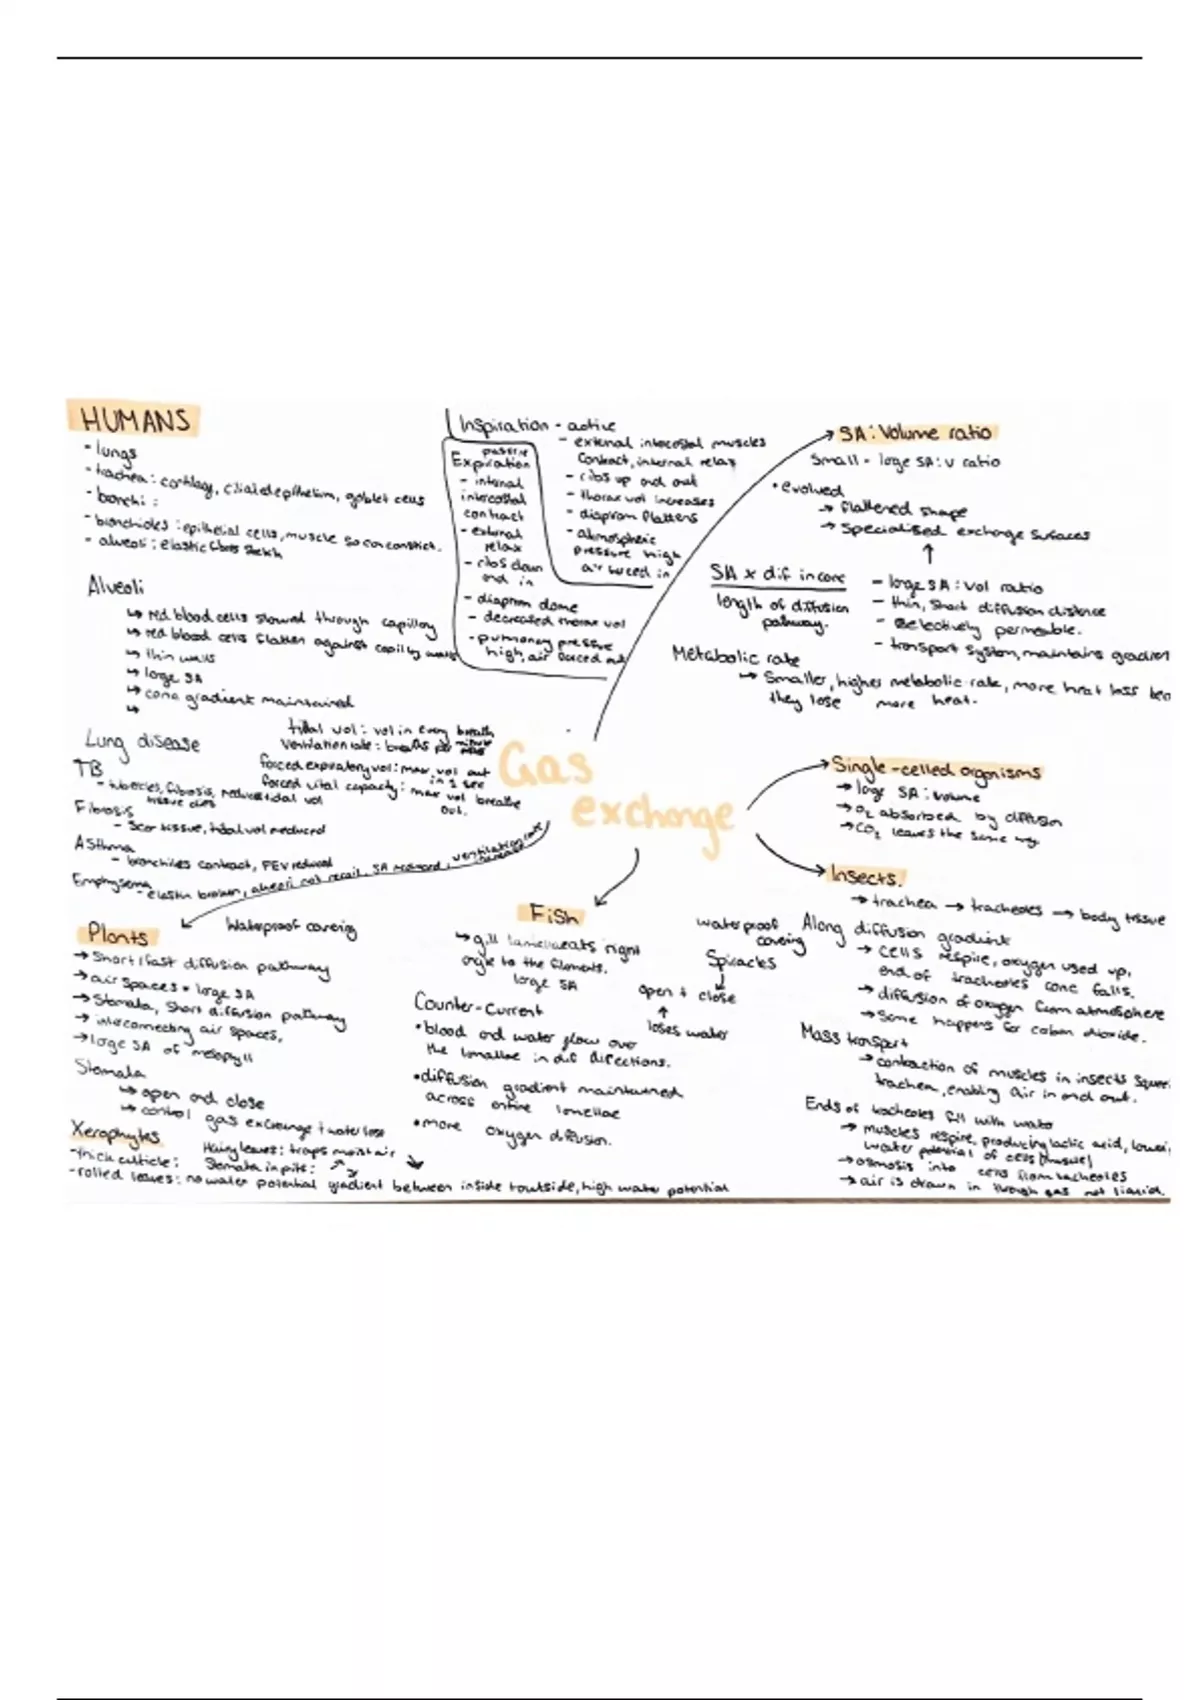 HUMANS
- lungs
- trachea: cartilage, ciliated epithelium, goblet cells
- bronchi:
- bronchioles: epithelial cells, muscle so can constrict.
- alveoli: elastic fibres stretch
Alveoli
↳ red blood cells slowed through capillary
↳ red blood cells flatten against capillary walls
↳ thin walls
↳ large SA
↳ conc gradient maintained
↳
Lung disease
tidal vol: vol in every breath
ventilation rate: breaths per minute
forced expiratory vol: max vol out in 1 sec
forced vital capacity: max vol breathe out.
TB
- tubercles, fibrosis, reduces tidal vol
tissue dies
Fibrosis
- scar tissue, tidal vol reduced
Asthma
- bronchiles contract, FEV reduced
Emphysema
- elastin broken, alveoli not recoil, SA reduced, ventilation rate
Inspiration - active
- external intercostal muscles
contract, internal relax
- ribs up and out
- thorax vol increases
- diaphram flattens
- atmospheric
pressure high
air sucked in
passive
Expiration
- internal
intercostal
contract
- external
relax
- ribs down
and in
- diaphram dome
- decreased thorax vol
- pulmonary pressure
high, air forced out
SA: Volume ratio
Small - large SA: V ratio
• evolved
→ flattened shape
→ specialised exchange surfaces
- large SA: Vol ratio
- thin, short diffusion distance
- selectively permeable.
- transport system, maintains gradient
SA x dif in conc
length of diffusion
pathway.
Metabolic rate
→ Smaller, higher metabolic rate, more heat loss
they lose more heat.
Gas
exchange
Single-celled organisms
→ large SA: volume
→ O₂ absorbed by diffusion
→ CO₂ leaves the same way
Insects.
→ trachea → tracheoles → body tissue
Along diffusion gradient
→ cells respire, oxygen used up,
end of tracheoles conc falls.
→ diffusion of oxygen from atmosphere
→ same happens for carbon dioxide.
Mass transport
→ contraction of muscles in insects
trachea, enabling air in and out.
Ends of tracheoles fill with water
→ muscles respire, producing lactic acid,
water potential of cells (muscle)
→ osmosis into cells from tracheoles
→ air is drawn in through gas not liquid.
waterproof
covering
Spiracles
open + close
↑
loses water
Fish
→ gill lamellae at right
angle to the filaments.
large SA
Counter-Current
• blood and water flow over
the lamellae in dif directions.
• diffusion gradient maintained
across entire lamellae
• more oxygen diffusion.
Plants
Waterproof covering
→ Short/fast diffusion pathway
→ air spaces = large SA
→ Stomata, short diffusion pathway
→ interconnecting air spaces,
→ large SA of mesophyll
Stomata
↳ open and close
↳ control gas exchange + water loss
Xerophytes
- thick cuticle:
Hairy leaves: traps moist air
Stomata in pits:
- rolled leaves: no water potential gradient between inside + outside, high water potential